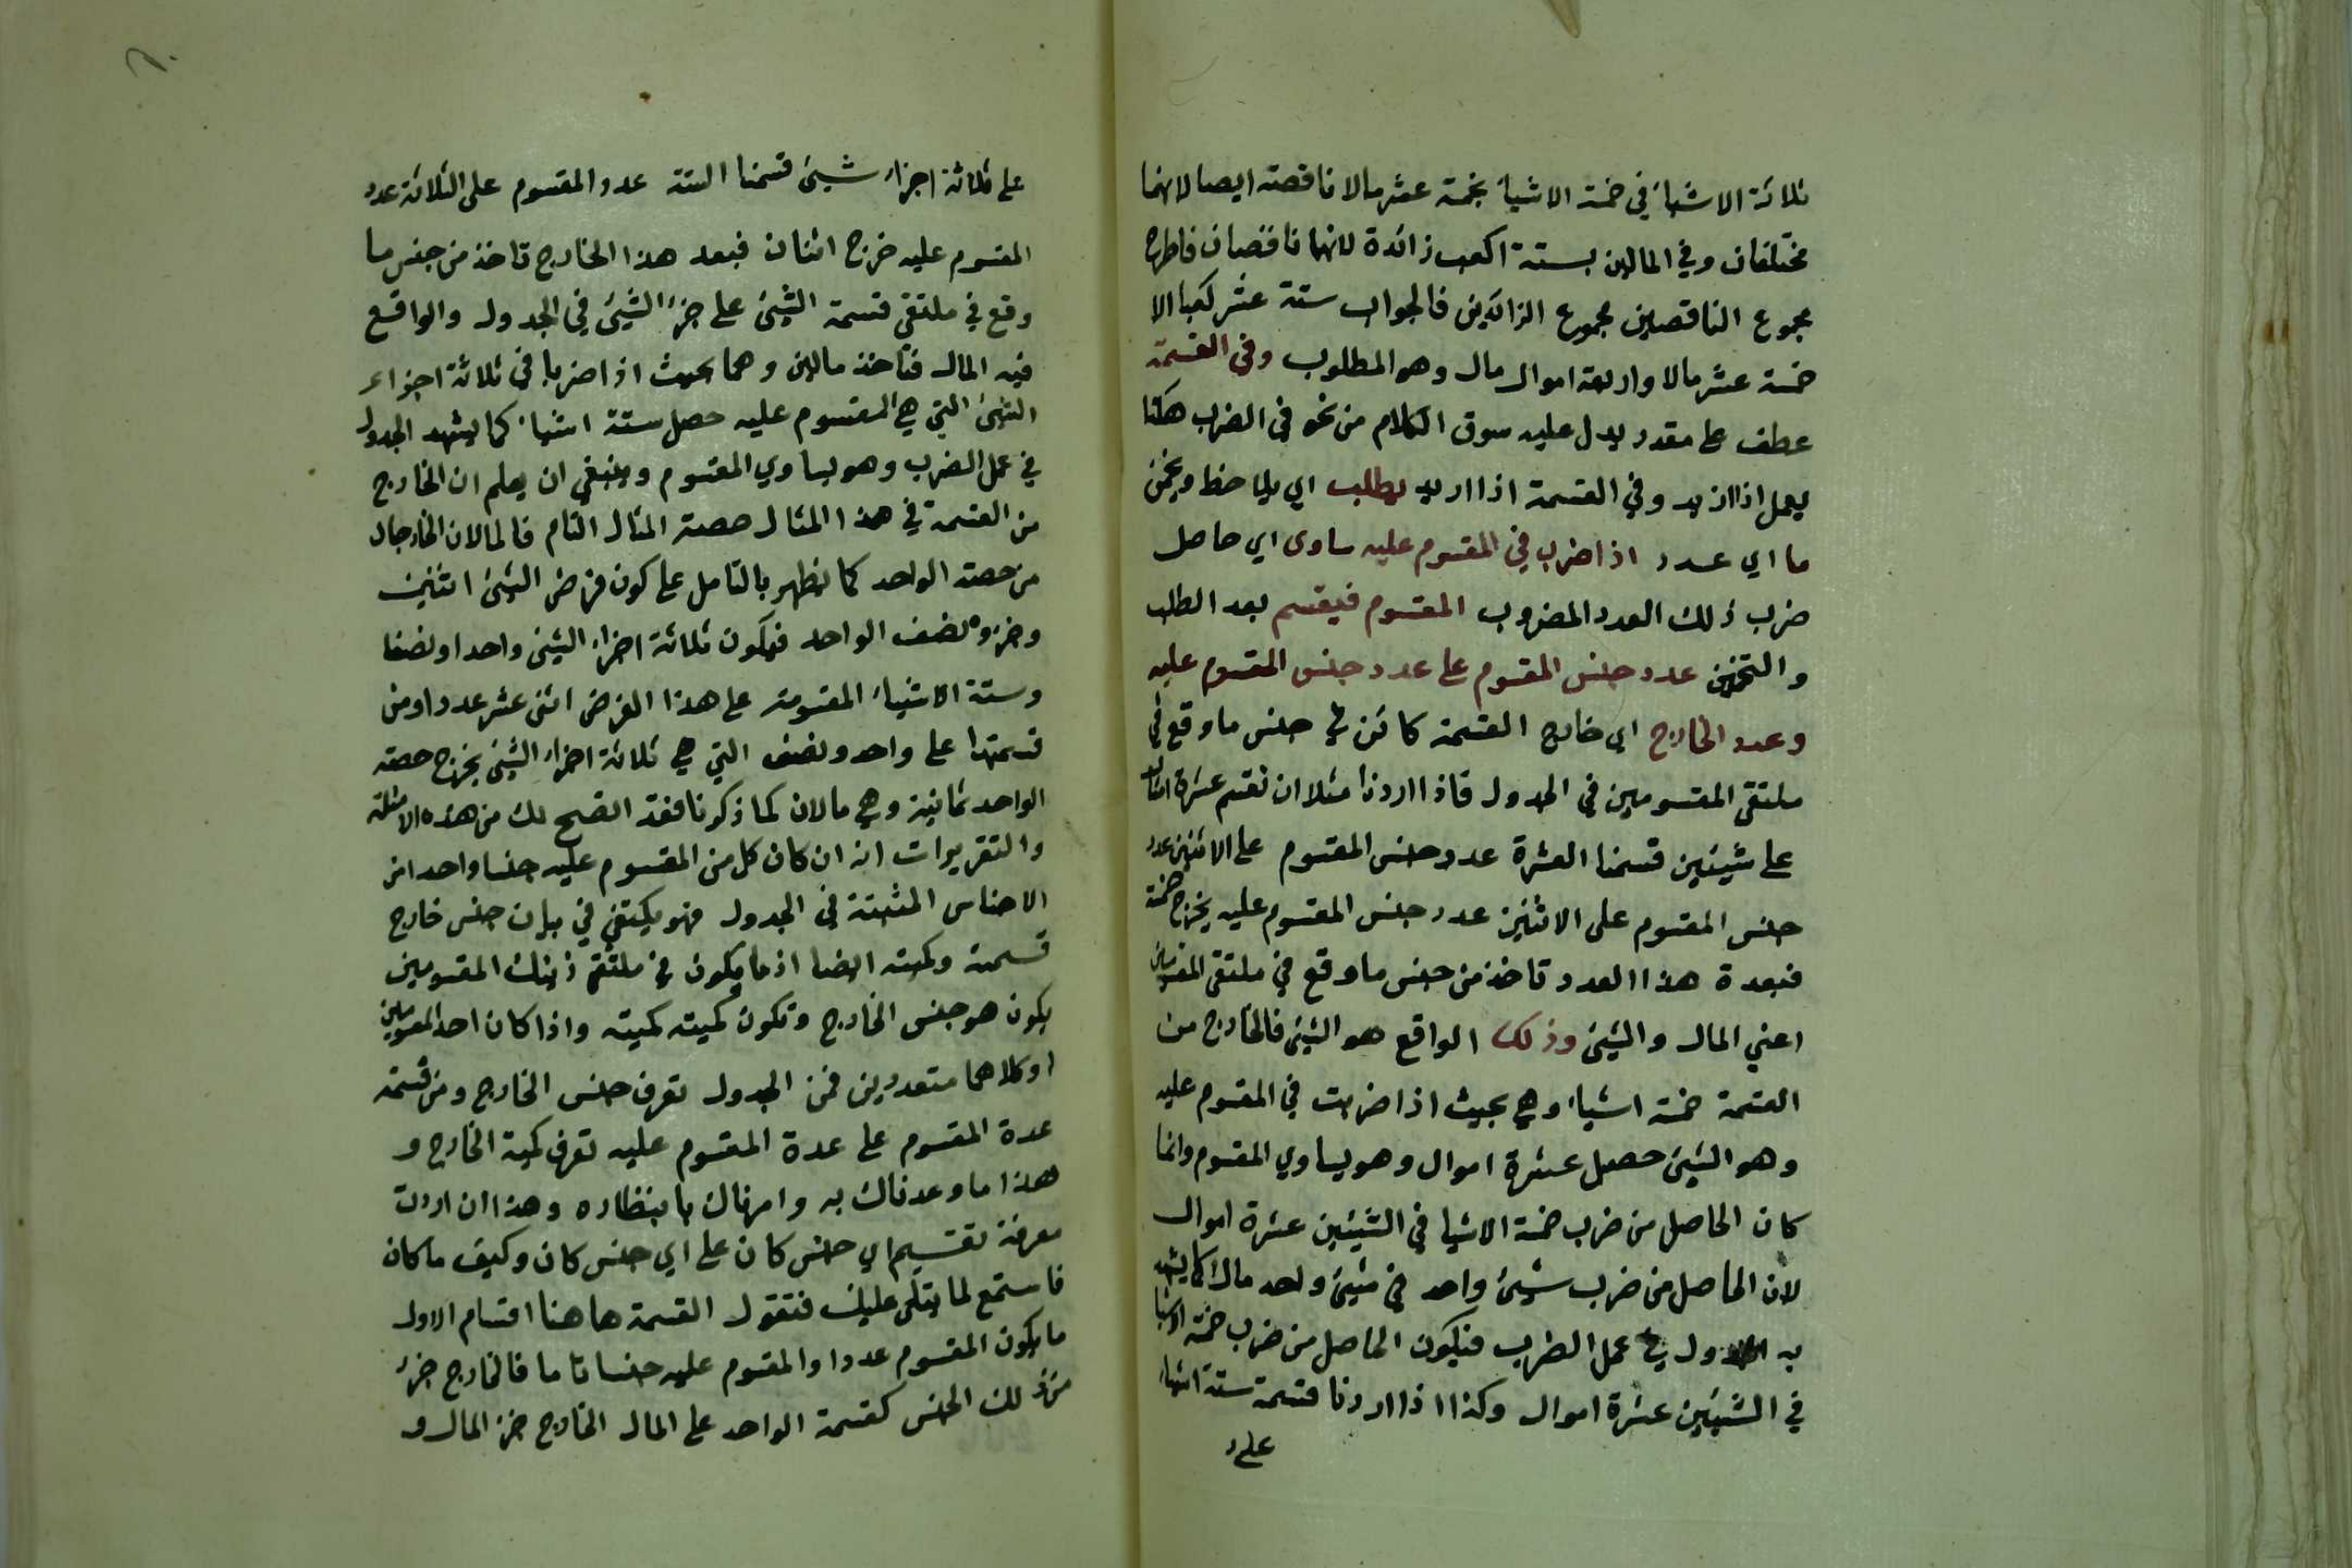 ثلاثة الاشياء في خمسة الاشياء بخمسة عشر مالا ناقصة ايضا لانهما
مختلفان وفي المالين بستة اكعب زائدة لانهما ناقصان فاطرح
مجموع الناقصين مجموع الزائدين فالجواب ستة عشر كعبا الا
خمسة عشر مالا واربعة اموال مال وهو المطلوب وفي القسمة
عطف على مقدر يدل عليه سوق الكلام من نحو في الضرب هكذا
يعمل اذا اريد وفي القسمة اذا اريد يطلب اي يلاحظ ويخمن
ما اي عدد اذا ضرب في المقسوم عليه ساوى اي حاصل
ضرب ذلك العدد المضروب المقسوم فيقسم بعد الطلب
والتخمين عدد جنس المقسوم على عدد جنس المقسوم عليه
وعدد الخارج اي خارج القسمة كائن في جنس ما وقع في
ملتقى المقسومين في الجدول فاذا اردنا مثلا ان نقسم عشرة اموال
على شيئين قسمنا العشرة عدد جنس المقسوم على الاثنين عدد
جنس المقسوم على الاثنين عدد جنس المقسوم عليه يخرج خمسة
فبعدة هذا العدد تاخذ من جنس ما وقع في ملتقى المقسومين
اعني المال والشيئ وذلك الواقع هو الشيئ فالخارج من
القسمة خمسة اشياء وهي بحيث اذا ضربت في المقسوم عليه
وهو الشيئ حصل عشرة اموال وهو يساوي المقسوم وانما
كان الحاصل من ضرب خمسة الاشيا في الشيئين عشرة اموال
لان الحاصل من ضرب شيئ واحد في شيئ واحد مال كما يشهد
به الجدول في عمل الضرب فيكون الحاصل من ضرب خمسة الاشيا
في الشيئين عشرة اموال وكذا اذا اردنا قسمة ستة اشياء
على
على ثلاثة اجزاء شيئ قسمنا الستة عدد المقسوم على الثلاثة عدد
المقسوم عليه خرج اثنان فبعد هذا الخارج تاخذ من جنس ما
وقع في ملتقى قسمة الشيئ على جزء الشيئ في الجدول والواقع
فيه المال فتاخذ مالين وهما بحيث اذا ضربا في ثلاثة اجزاء
الشيئ التي هي المقسوم عليه حصل ستة اشياء كما يشهد الجدول
في عمل الضرب وهو يساوي المقسوم وينبغي ان يعلم ان الخارج
من القسمة في هذا المثال حصة المثال التام فالمالان الخارجان
من حصة الواحد كما يظهر بالتامل على كون فرض الشيئ اثنين
وجزوه نصف الواحد فيكون ثلاثة اجزاء الشيئ واحدا ونصفا
وستة الاشياء المقسومة على هذا الفرض اثنى عشر عددا ومن
قسمتها على واحد ونصف التي هي ثلاثة اجزاء الشيئ يخرج حصة
الواحد ثمانية وهي مالان كما ذكرنا فقد اتضح لك من هذه الامثلة
والتقريرات انه ان كان كل من المقسوم عليه جنسا واحدا من
الاجناس المثبتة في الجدول فهو يكتفي في بيان جنس خارج
قسمته وكميته ايضا اذ ما يكون في ملتقى ذينك المقسومين
يكون هو جنس الخارج وتكون كميته كميته واذا كان احد المقسومين
او كلاهما متعددين فمن الجدول تعرف جنس الخارج ومن قسمة
عدة المقسوم على عدة المقسوم عليه تعرف كمية الخارج و
هذا ما وعدناك به وامرناك بانتظاره وهذا ان اردت
معرفة تقسيم اي جنس كان على اي جنس كان وكيف ما كان
فاستمع لما يتلى عليك فنقول القسمة هاهنا اقسام الاول
ما يكون المقسوم عددا والمقسوم عليه جنسا تاما فالخارج جزء
من ذلك الجنس كقسمة الواحد على المال الخارج جزء المال و